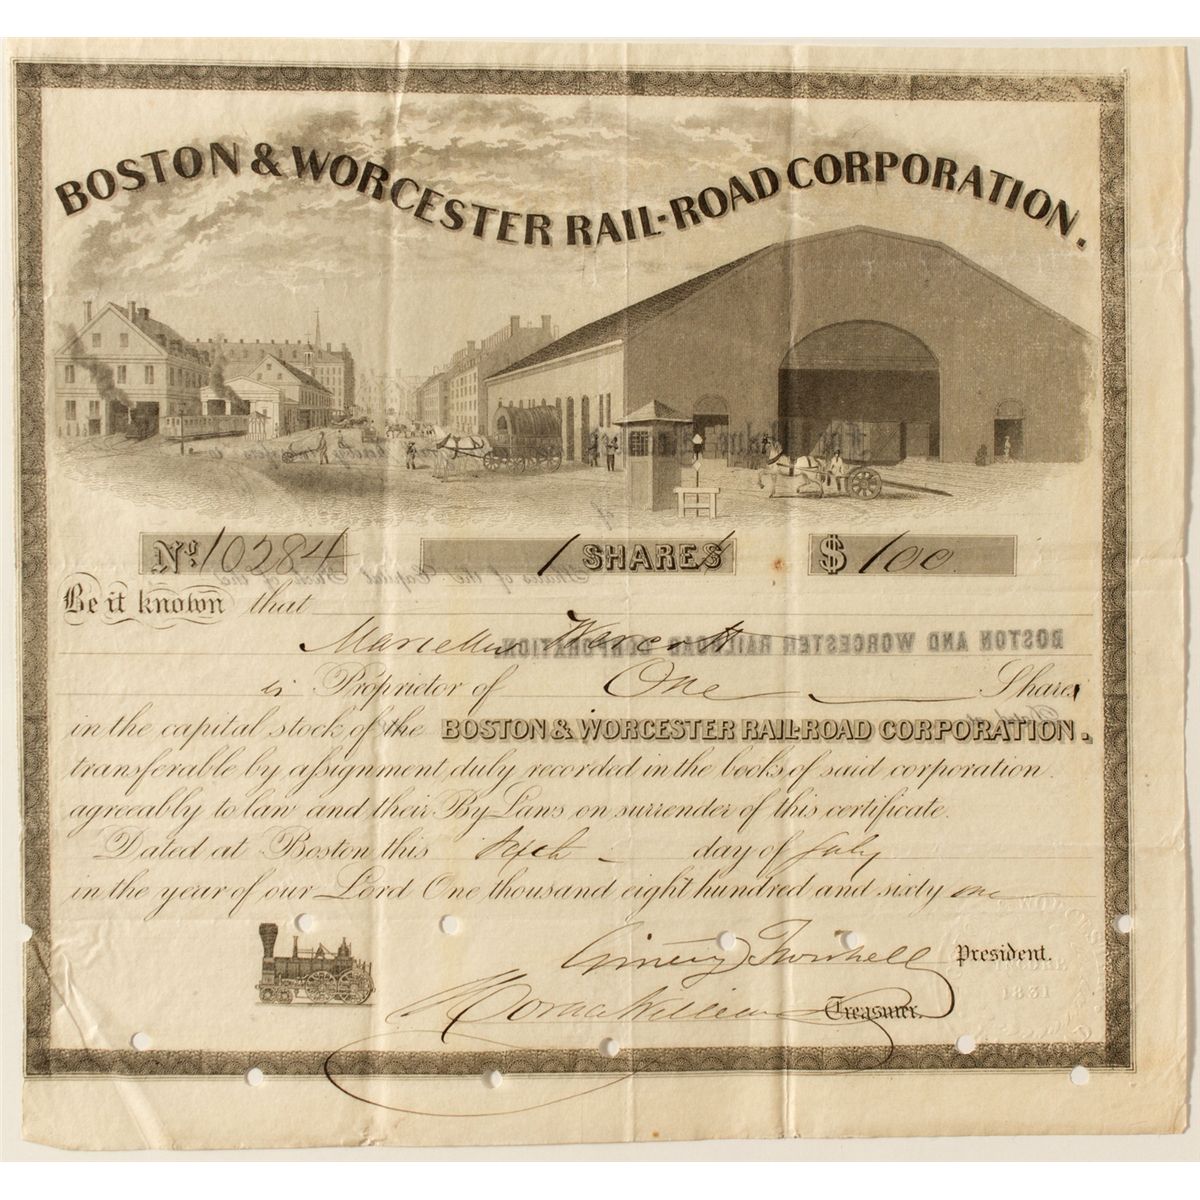 BOSTON & WORCESTER RAIL-ROAD CORPORATION.
No. 10284 1 SHARES $ 100
Be it known that
is Proprietor of One Share
in the capital stock of the BOSTON & WORCESTER RAIL-ROAD CORPORATION.
transferable by assignment duly recorded in the books of said corporation
agreeably to law and their By Laws on surrender of this certificate.
Dated at Boston this Sixth day of July
in the year of our Lord One thousand eight hundred and sixty one
Ginery Twichell President.
Horace Williams Treasurer.
1831
BOSTON AND WORCESTER RAILROAD CORPORATION
Shares of the Capital Stock of the